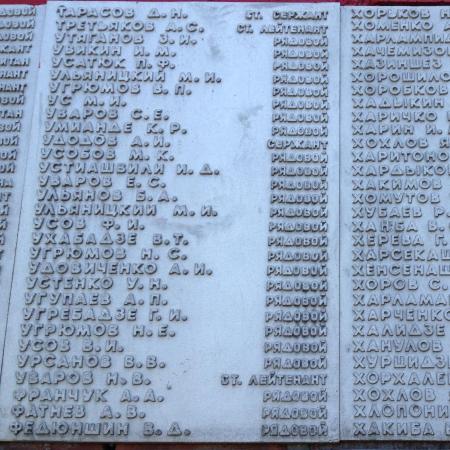 ТАРАСОВ Д.Н. СТ. СЕРЖАНТ
ТРЕТЬЯКОВ А.С. СТ. ЛЕЙТЕНАНТ
УТЯГАНОВ З.И. РЯДОВОЙ
УВИКИН И.М. РЯДОВОЙ
УСАТЮК П.Ф. РЯДОВОЙ
УЛЬЯНИЦКИЙ М.И. РЯДОВОЙ
УГРЮМОВ В.П. РЯДОВОЙ
УС М.И. РЯДОВОЙ
УВАРОВ С.Е. РЯДОВОЙ
УМИАНДЕ К.Р. РЯДОВОЙ
УДОДОВ А.И. СЕРЖАНТ
УСОБОВ М.К. РЯДОВОЙ
УСТИАШВИЛИ И.Д. РЯДОВОЙ
УВАРОВ Е.С. РЯДОВОЙ
УЛЬЯНОВ Б.А. РЯДОВОЙ
УЛЬЯНИЦКИЙ М.И. РЯДОВОЙ
УСОВ Ф.И. РЯДОВОЙ
УХАБАДЗЕ В.Т. РЯДОВОЙ
УГРЮМОВ Н.С. РЯДОВОЙ
УДОВИЧЕНКО А.И. РЯДОВОЙ
УСТЕНКО У.Н. РЯДОВОЙ
УГУПАЕВ А.П. РЯДОВОЙ
УГРЕБАДЗЕ Г.И. РЯДОВОЙ
УГРЮМОВ Н.Е. РЯДОВОЙ
УСОВ В.И. РЯДОВОЙ
УРСАНОВ В.В. РЯДОВОЙ
УВАРОВ Н.В. СТ. ЛЕЙТЕНАНТ
ФРАНЧУК А.А. РЯДОВОЙ
ФАТНЕВ А.В. РЯДОВОЙ
ФЕДЮНШИН В.Д. РЯДОВОЙ
ХОРЬКОВ
ХОМЕНКО
ХАРЛАМПИ
ХАЧЕМИЗО
ХАЗИНШЕЗ
ХОРОШИЛО
ХОРОБКОВ
ХАДЫКИН
ХАРИЧКО
ХАРИН И.
ХОХЛОВ Я
ХАРИТОНО
ХАРДЫКО
ХАКИМОВ
ХОМУТОВ
ХУБАЕВ Р.
ХАНБА В.
ХЕРЕВА Г.
ХАРСЕКА
ХЕНСЕНА
ХОРОВ С.
ХАРЛАМА
ХАРЧЕНКО
ХАЛИДЗЕ
ХАНУЛОВ
ХУРШИДЗ
ХОРХАЛЕ
ХОХЛОВ
ХЛОПОНИ
ХАКИБА